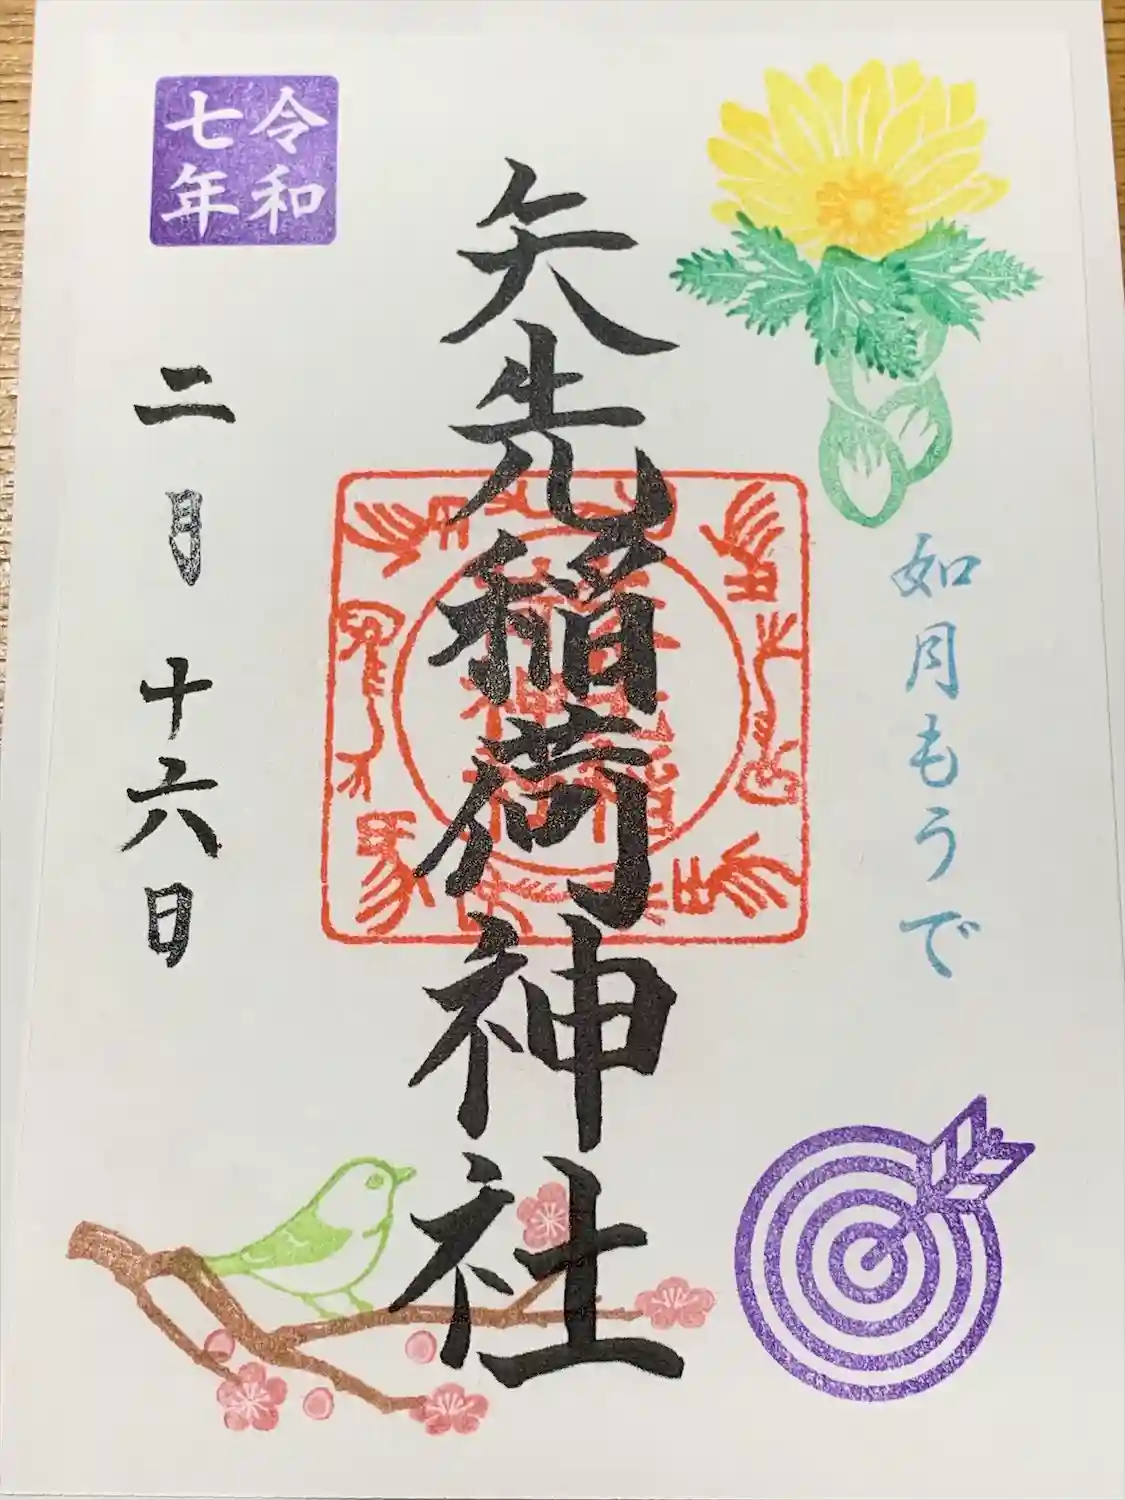 如月もうで
矢先稲荷神社
令和
七年
二月十六日